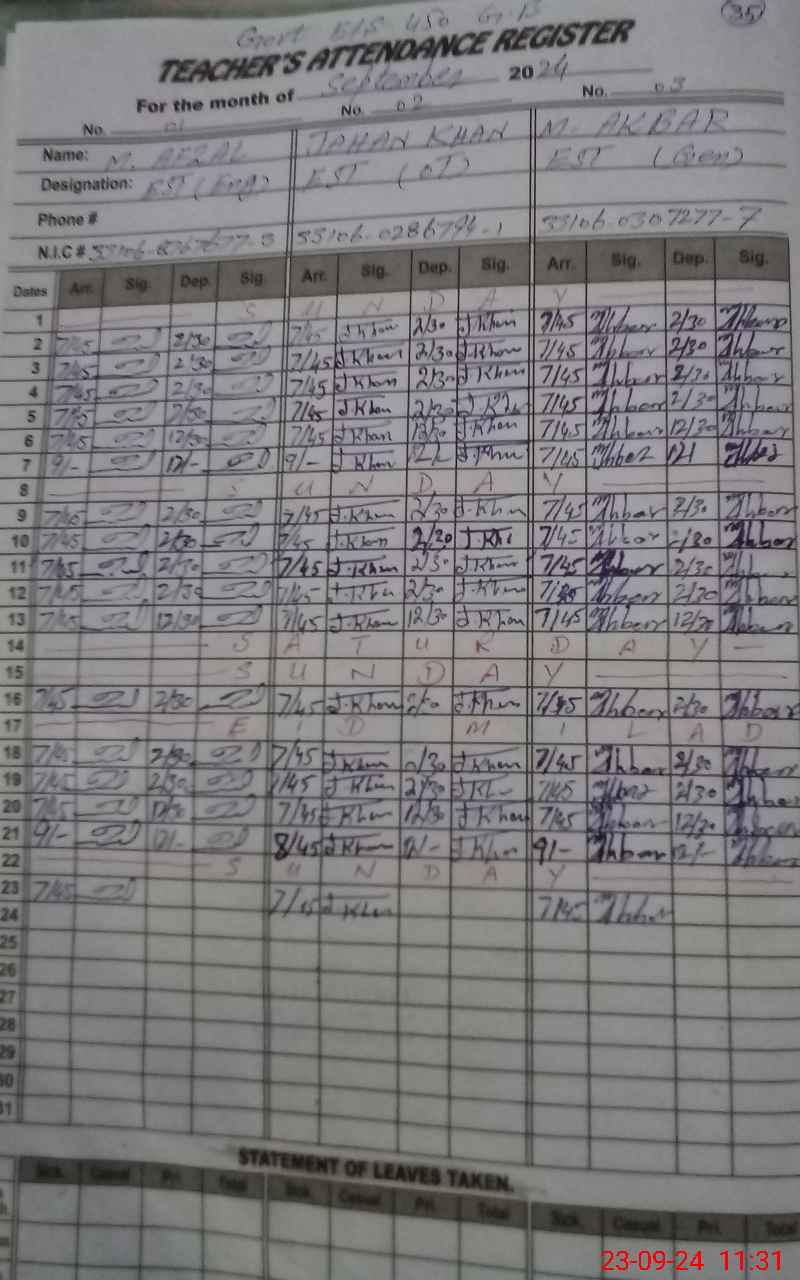 Govt E/S 450 G.B
35
TEACHER'S ATTENDANCE REGISTER
For the month of September 2024
No. 01 No. 02 No. 03
Name: M. AFZAL JAHAN KHAN M. AKBAR
Designation: EST (Eng) EST (OT) EST (Gen)
Phone #
N.I.C # 33106-0286794-1 33106-0307277-7
Dates Arr. Sig. Dep. Sig. Arr. Sig. Dep. Sig. Arr. Sig. Dep. Sig.
1 S U N D A Y
2 7/45 2/30 7/45 J.Khan 2/30 J.Khan 7/45 Akbar 2/30 Akbar
3 7/45 2/30 7/45 J.Khan 2/30 J.Khan 7/45 Akbar 2/30 Akbar
4 7/45 2/30 7/45 J.Khan 2/30 J.Khan 7/45 Akbar 2/30 Akbar
5 7/45 2/30 7/45 J.Khan 2/30 J.Khan 7/45 Akbar 2/30 Akbar
6 7/45 12/30 7/45 J.Khan 12/30 J.Khan 7/45 Akbar 12/30 Akbar
7 9/- 12/- 9/- J.Khan J.Khan 7/45 Akbar Akbar
8 S U N D A Y
9 7/45 2/30 7/45 J.Khan 2/30 J.Khan 7/45 Akbar 2/30 Akbar
10 7/45 2/30 7/45 J.Khan 2/30 J.Khan 7/45 Akbar 2/30 Akbar
11 7/45 2/30 7/45 J.Khan 2/30 J.Khan 7/45 Akbar 2/30 Akbar
12 7/45 2/30 7/45 J.Khan 2/30 J.Khan 7/45 Akbar 2/30 Akbar
13 7/45 12/30 7/45 J.Khan 12/30 J.Khan 7/45 Akbar 12/30 Akbar
14 S A T U R D A Y
15 S U N D A Y
16 7/45 2/30 7/45 J.Khan J.Khan 7/45 Akbar 2/30 Akbar
17 E I D M I L A D
18 7/45 2/30 7/45 J.Khan 2/30 J.Khan 7/45 Akbar 2/30 Akbar
19 7/45 2/30 7/45 J.Khan 2/30 J.Khan 7/45 Akbar 2/30 Akbar
20 7/45 12/30 7/45 J.Khan 12/30 J.Khan 7/45 Akbar 12/30 Akbar
21 9/- 12/- 8/45 J.Khan 12/- J.Khan 9/- Akbar 12/- Akbar
22 S U N D A Y
23 7/45 7/45 J.Khan 7/45 Akbar
24
25
26
27
28
29
30
31
STATEMENT OF LEAVES TAKEN.
Sick. Casual Pri. Total Sick. Casual Pri. Total Sick. Casual Pri. Total
23-09-24 11:31